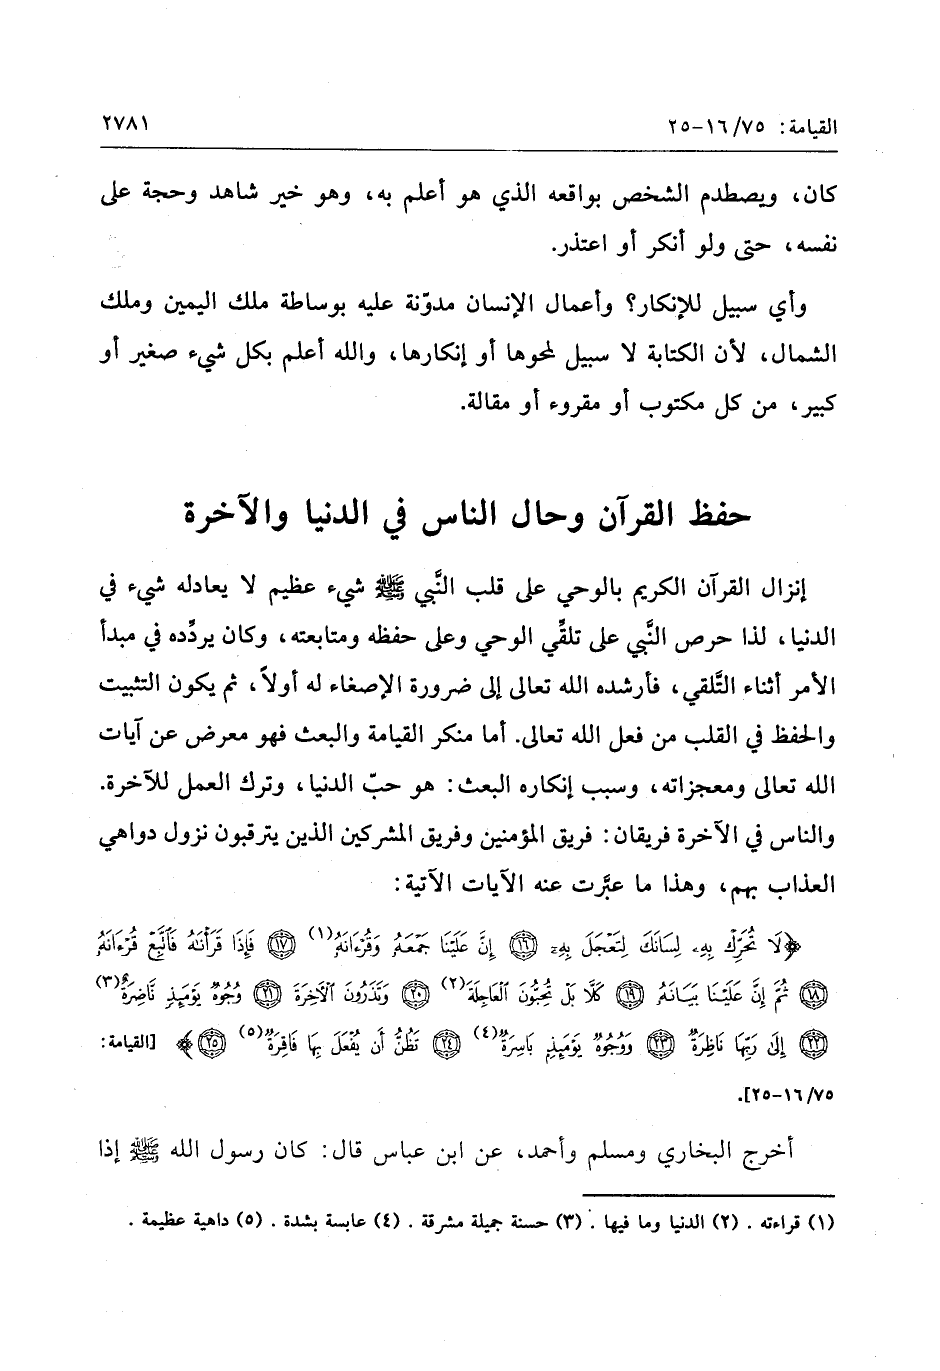 القيامة: ٧٥/ ١٦-٢٥ ٢٧٨١
كان، ويصطدم الشخص بواقعه الذي هو أعلم به، وهو خير شاهد وحجة على
نفسه، حتى ولو أنكر أو اعتذر.
وأي سبيل للإنكار؟ وأعمال الإنسان مدوّنة عليه بوساطة ملك اليمين وملك
الشمال، لأن الكتابة لا سبيل لمحوها أو إنكارها، والله أعلم بكل شيء صغير أو
كبير، من كل مكتوب أو مقروء أو مقالة.
حفظ القرآن وحال الناس في الدنيا والآخرة
إنزال القرآن الكريم بالوحي على قلب النَّبي ﷺ شيء عظيم لا يعادله شيء في
الدنيا، لذا حرص النَّبي على تلقِّي الوحي وعلى حفظه ومتابعته، وكان يردِّده في مبدأ
الأمر أثناء التَّلقي، فأرشده الله تعالى إلى ضرورة الإصغاء له أولاً، ثم يكون التثبيت
والحفظ في القلب من فعل الله تعالى. أما منكر القيامة والبعث فهو معرض عن آيات
الله تعالى ومعجزاته، وسبب إنكاره البعث: هو حبّ الدنيا، وترك العمل للآخرة.
والناس في الآخرة فريقان: فريق المؤمنين وفريق المشركين الذين يترقبون نزول دواهي
العذاب بهم، وهذا ما عبَّرت عنه الآيات الآتية:
﴿لَا تُحَرِّكْ بِهِۦ لِسَانَكَ لِتَعْجَلَ بِهِۦٓ ۝١٦ إِنَّ عَلَيْنَا جَمْعَهُۥ وَقُرْءَانَهُۥ(١) ۝١٧ فَإِذَا قَرَأْنَٰهُ فَٱتَّبِعْ قُرْءَانَهُۥ
۝١٨ ثُمَّ إِنَّ عَلَيْنَا بَيَانَهُۥ ۝١٩ كَلَّا بَلْ تُحِبُّونَ ٱلْعَاجِلَةَ(٢) ۝٢٠ وَتَذَرُونَ ٱلْأٓخِرَةَ ۝٢١ وُجُوهٌ يَوْمَئِذٍ نَّاضِرَةٌ(٣)
۝٢٢ إِلَىٰ رَبِّهَا نَاظِرَةٌ ۝٢٣ وَوُجُوهٌ يَوْمَئِذٍۭ بَاسِرَةٌ(٤) ۝٢٤ تَظُنُّ أَن يُفْعَلَ بِهَا فَاقِرَةٌ(٥) ۝٢٥﴾ [القيامة:
٧٥/ ١٦-٢٥].
أخرج البخاري ومسلم وأحمد، عن ابن عباس قال: كان رسول الله ﷺ إذا
(١) قراءته . (٢) الدنيا وما فيها . (٣) حسنة جميلة مشرقة . (٤) عابسة بشدة . (٥) داهية عظيمة .